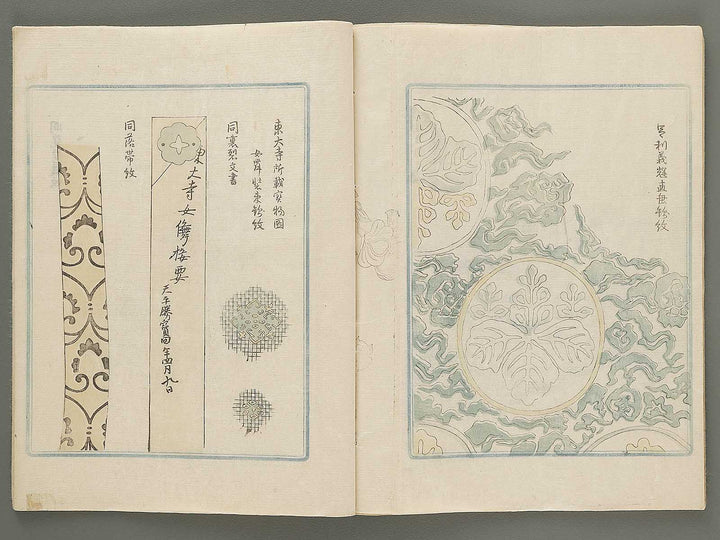 足利義輝直垂紗紋
東大寺所蔵宝物図
女舞装束紗紋
同裏裂文書
東大寺女舞接要
天平勝宝四年四月九日
同落帯紋